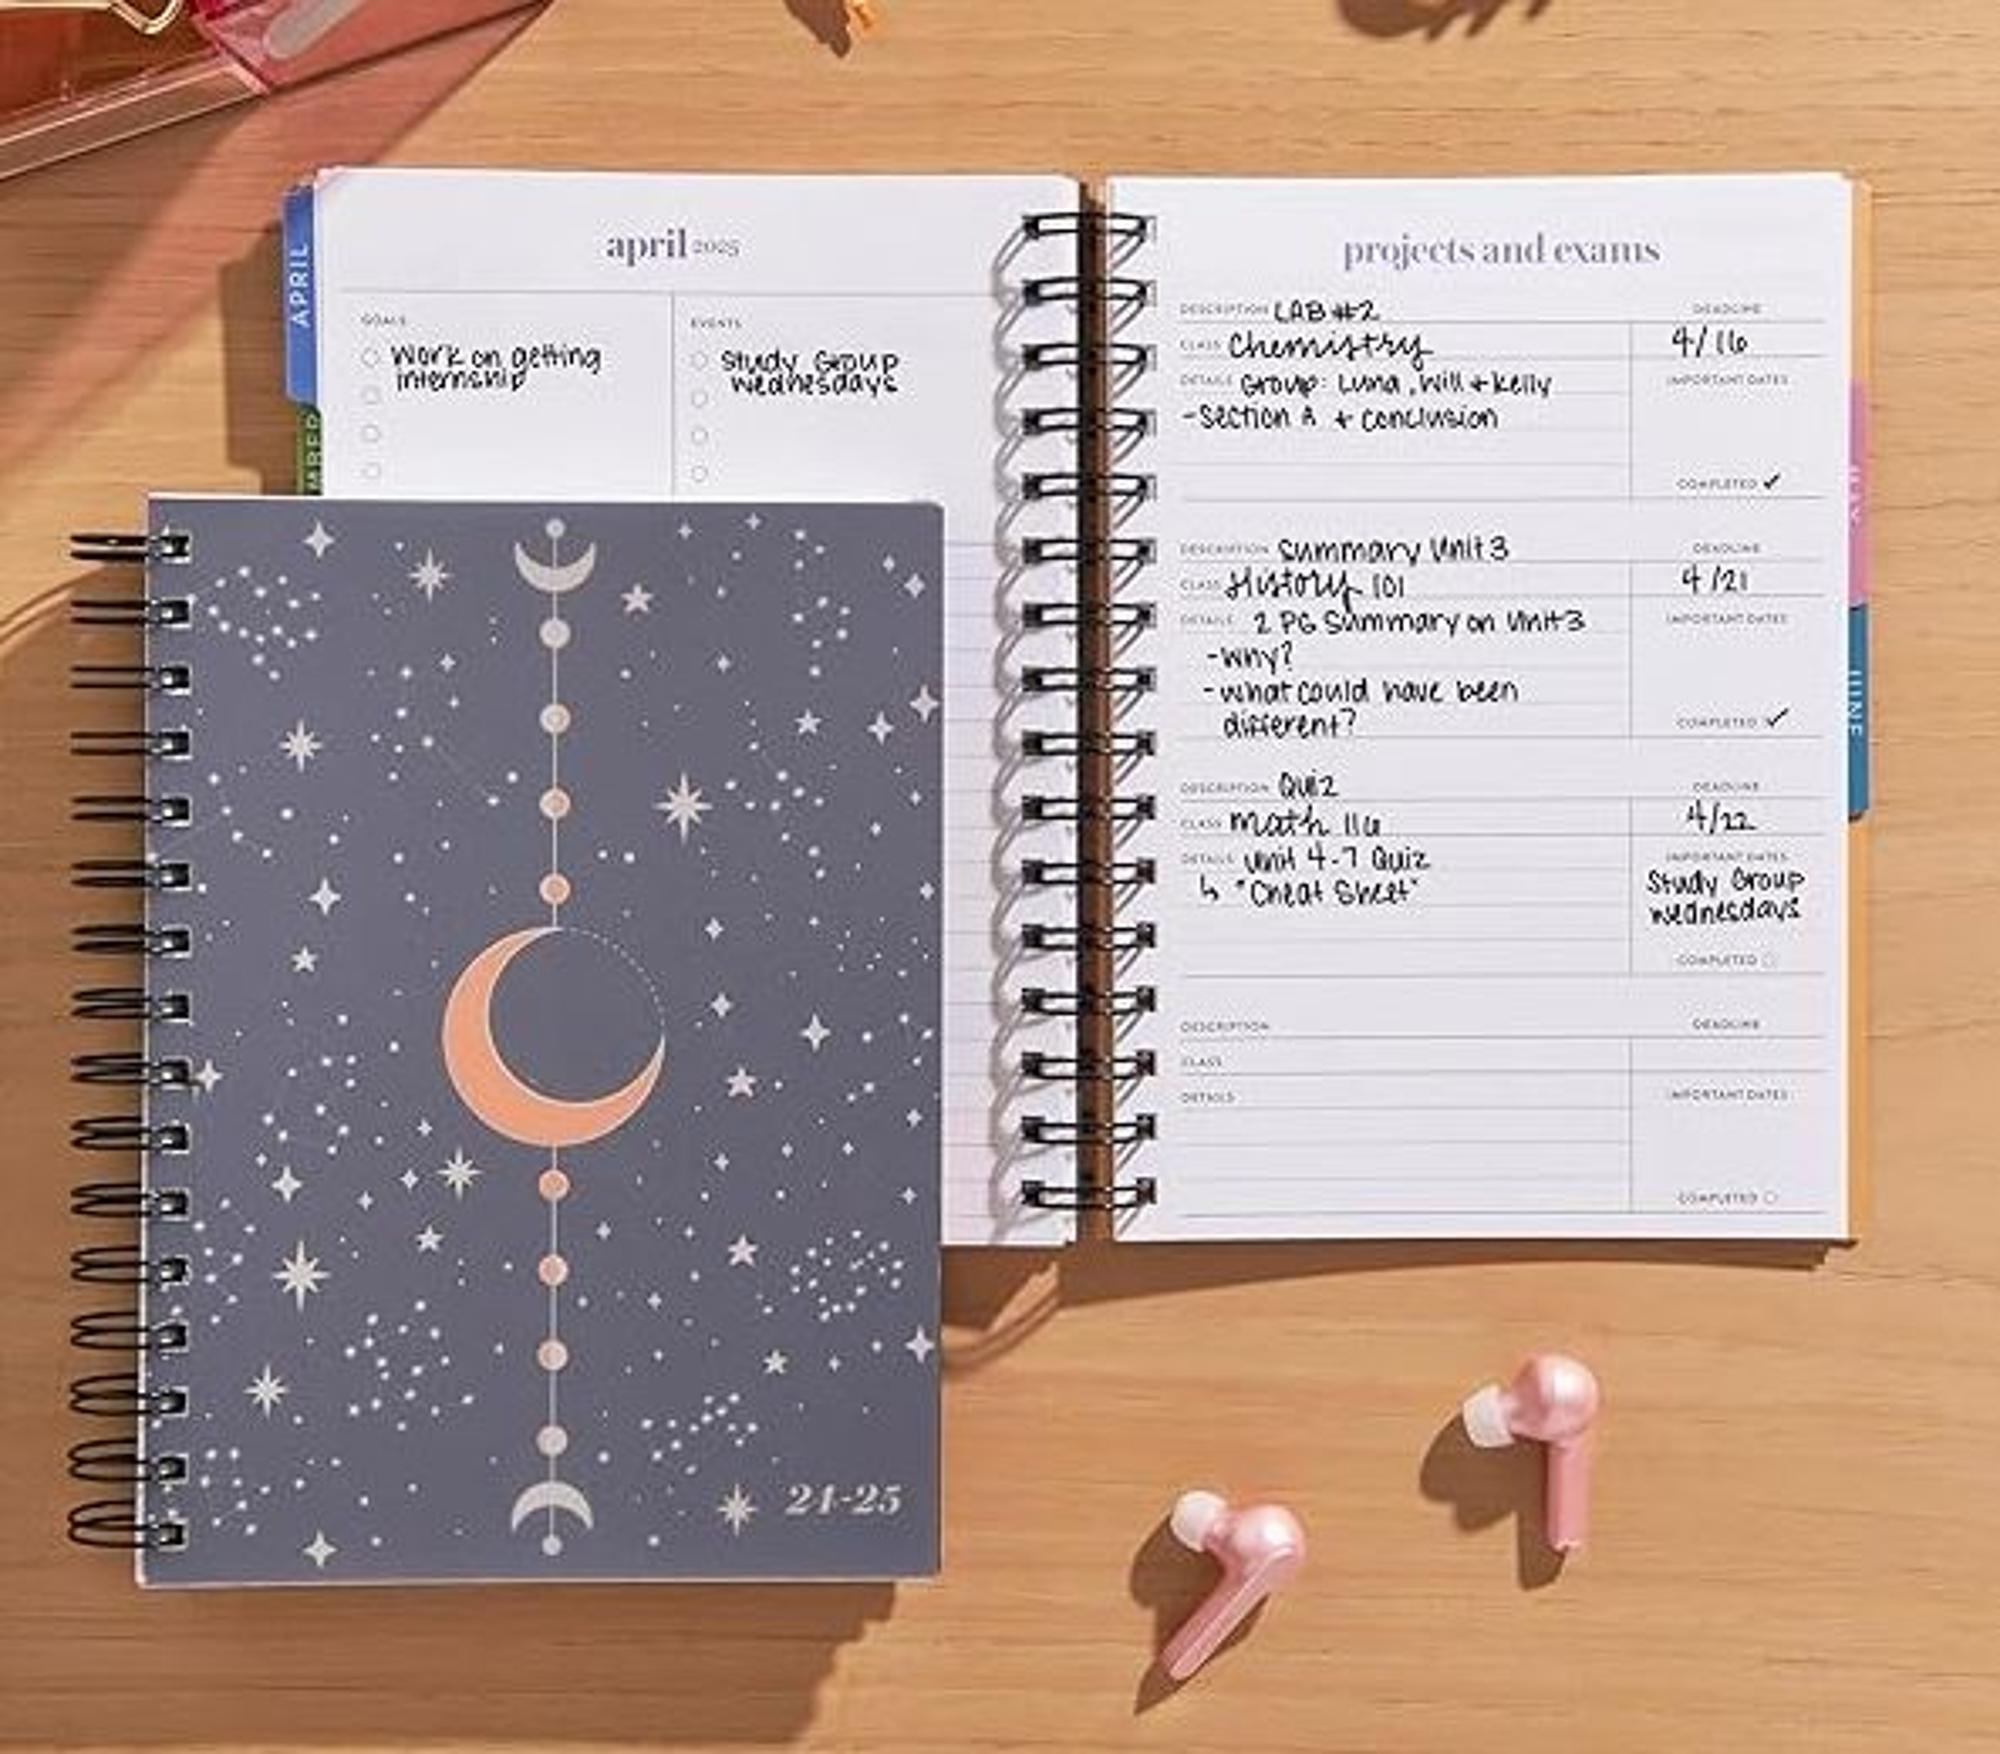 APRIL
MBER
april 2025
GOALS
Work on getting
internship
EVENTS
Study Group
Wednesdays
projects and exams
DESCRIPTION LAB #2 DEADLINE
CLASS Chemistry 4/16
DETAILS Group: Luna, Will + Kelly IMPORTANT DATES
- Section A + conclusion
COMPLETED ✓
DESCRIPTION Summary Unit 3 DEADLINE
CLASS History 101 4/21
DETAILS 2 PG Summary on Unit 3 IMPORTANT DATES
- Why?
- what could have been
different?
COMPLETED ✓
DESCRIPTION Quiz DEADLINE
CLASS Math 116 4/22
DETAILS Unit 4-7 Quiz IMPORTANT DATES
↳ "Cheat Sheet" Study Group
Wednesdays
COMPLETED
DESCRIPTION DEADLINE
CLASS
DETAILS IMPORTANT DATES
COMPLETED
JUNE
24-25